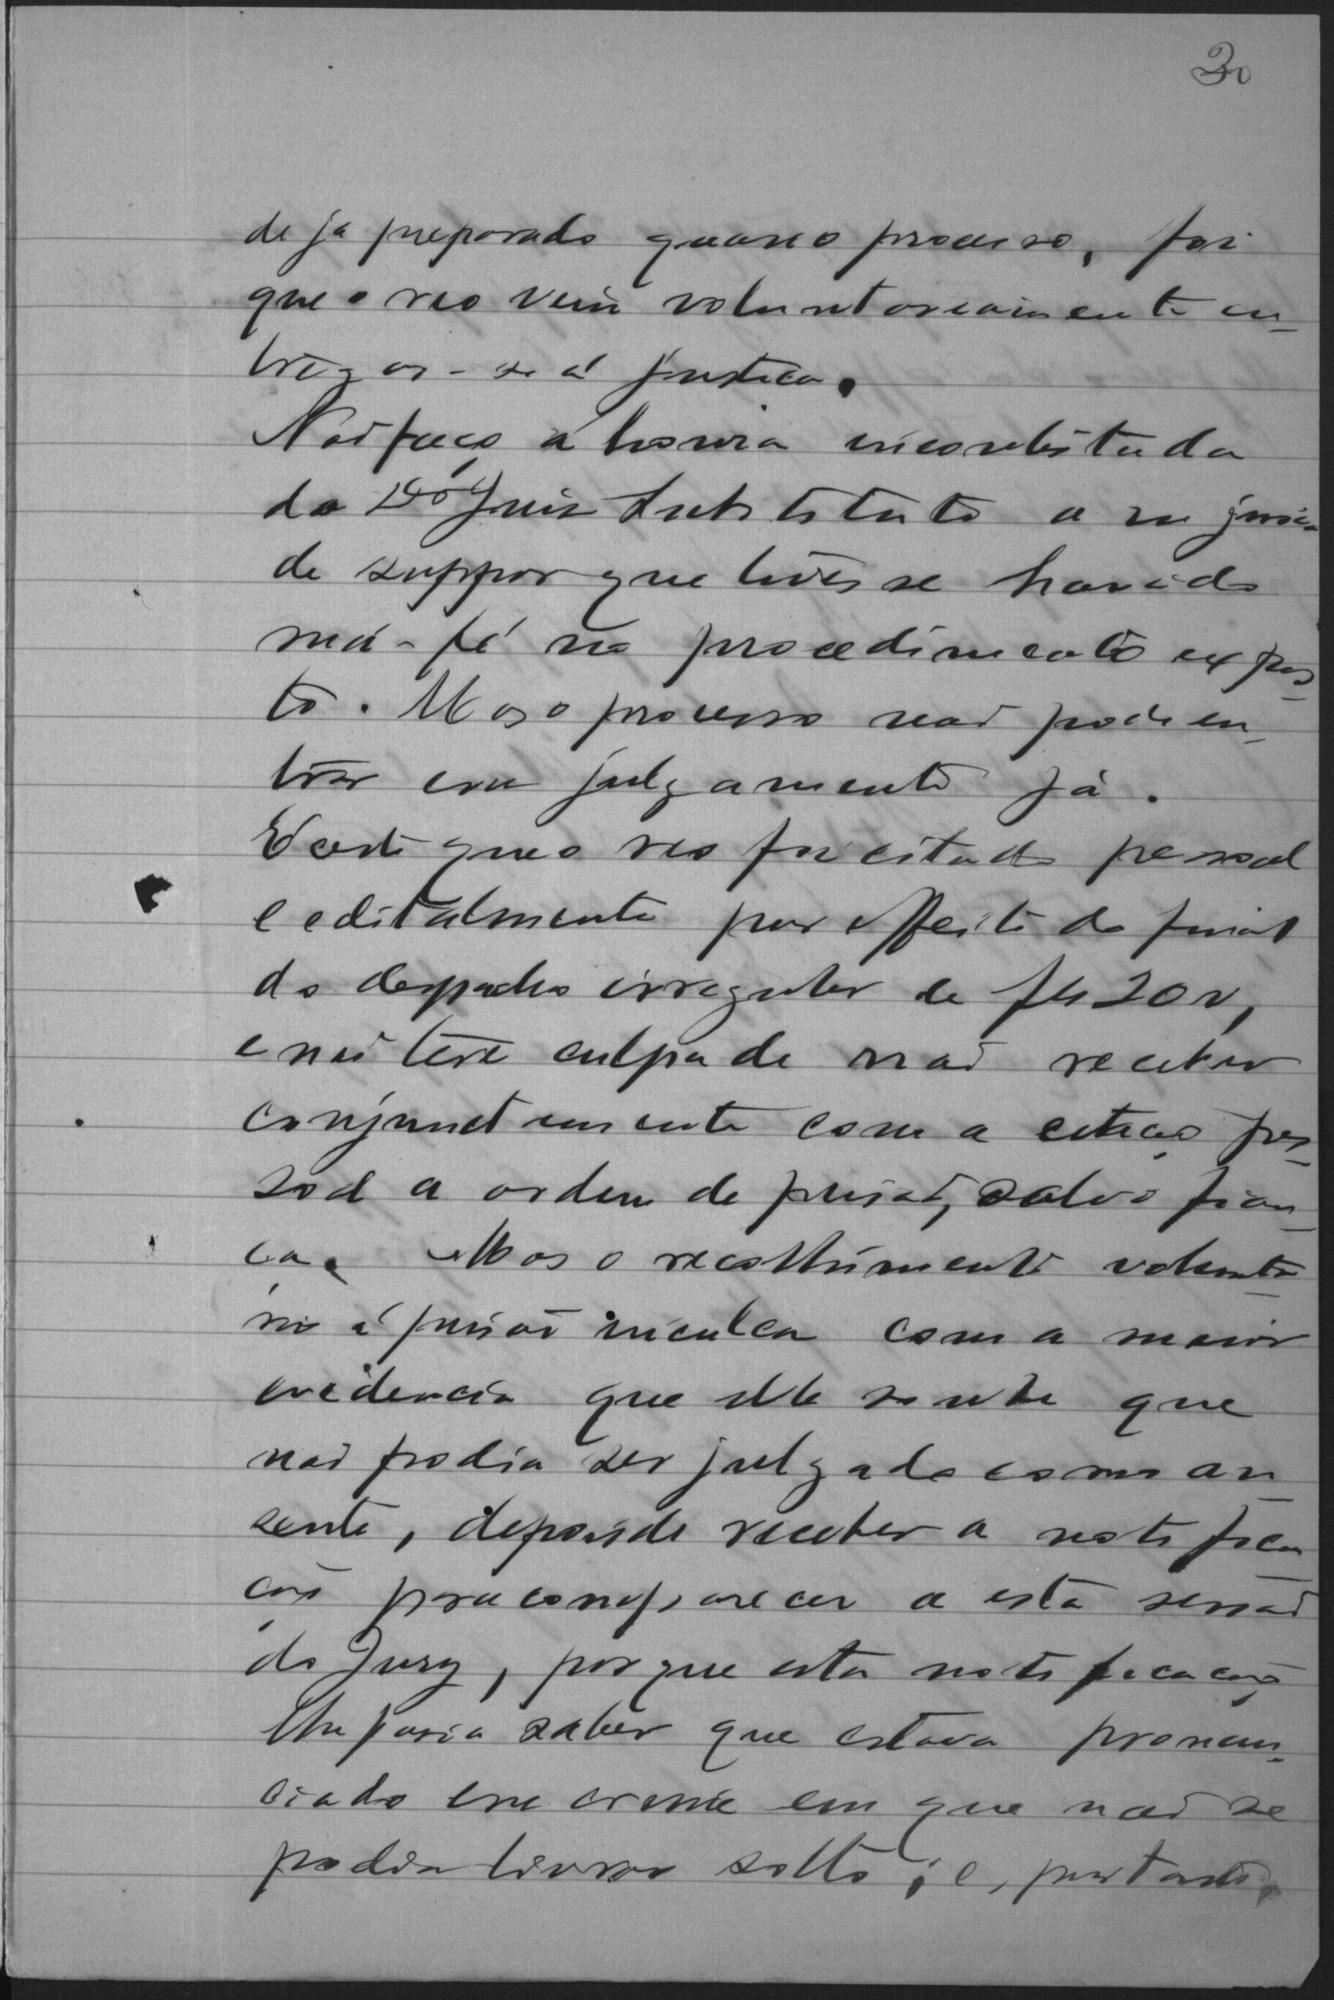 30
de já preparado quasi o processo, foi
que o reo veiu voluntoriamente en-
tregar-se á justiça.
Não faço á honra incontestada
do Dor Juiz Substituto a injuria
de suppor que tivesse havido
má-fé no procedimento expos-
to. Mas o processo não pode en-
trar em julgamento já.
É certo que o reo foi citado pessoal
e editalmente por effeito do final
do despacho irregular de fls 20 v,
e não teve culpa de não receber
conjunctamente com a citação pes-
soal a ordem de prisão, salvo fian-
ça. Mas o recolhimento volunta-
rio á prisão inculca com a maior
evidencia que elle soube que
não podia ser julgado como au-
sente, depois de receber a notifica
ção para comparecer a esta sessão
do Jury, por que esta notificação
lhe fazia saber que estava pronun-
ciado em crime em que não se
podia livrar solto; e, portanto,